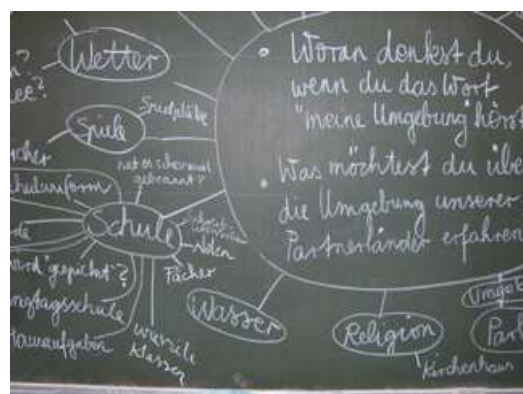 Wetter
ee?
Spiele
Spielplätze
hat es schon mal
gebrannt?
huluniform
Schule
Noten
Fächer
gepicket?
nztagsschule
ausaufgaben
wieviele
Klassen
Woran denkst du,
wenn du das Wort
"meine Umgebung" hörst
Was möchtest du übe
die Umgebung unserer
Partnerländer erfahren
Wasser
Religion
Kirchenhaus
Umgeb
Part